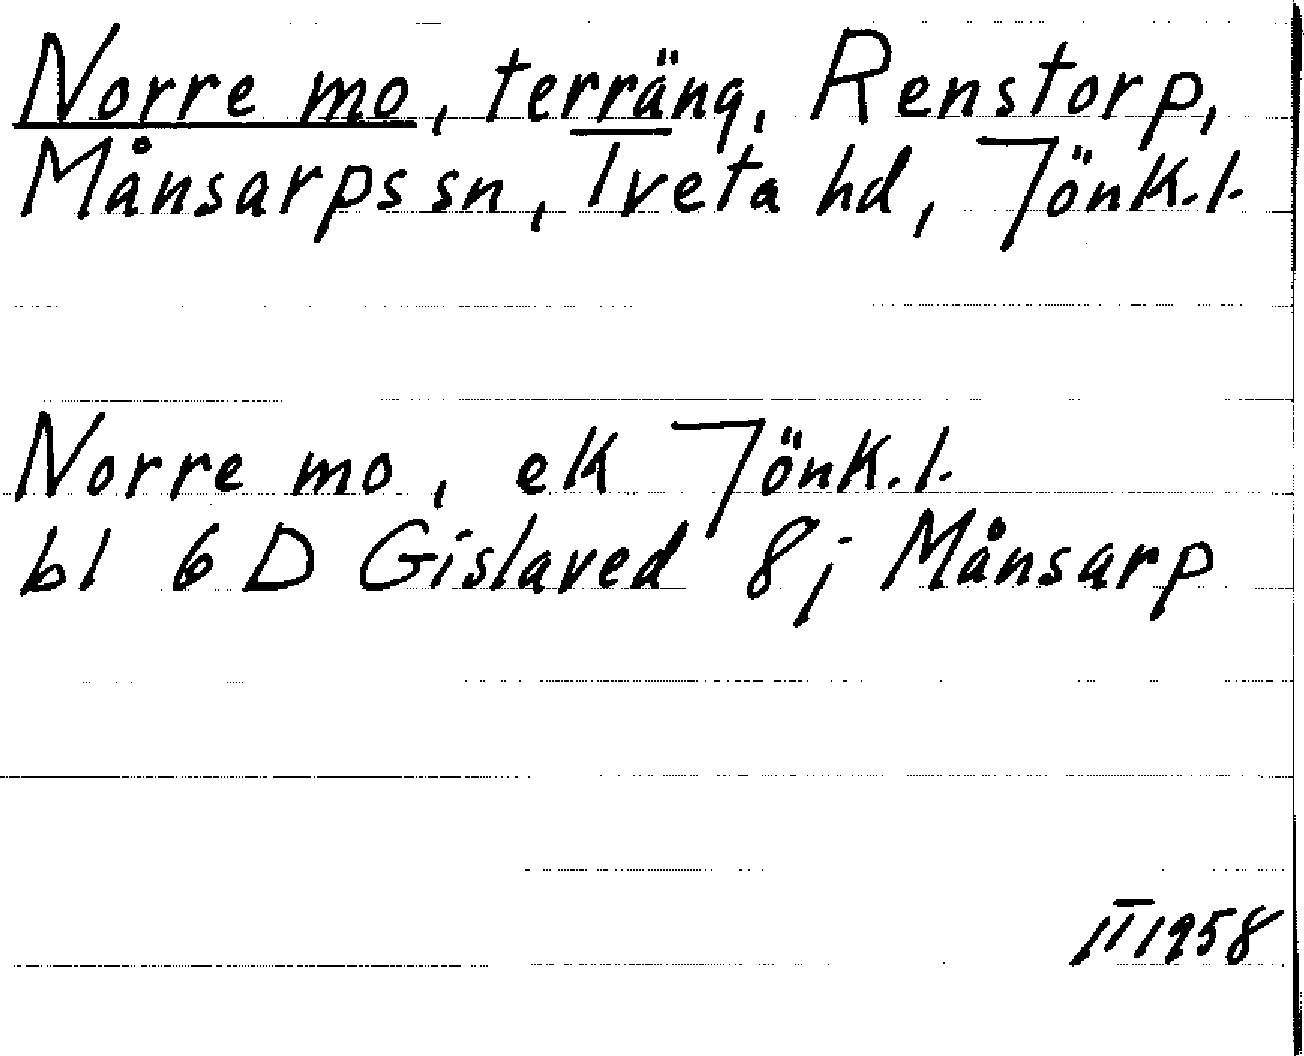 Norre mo, terräng, Renstorp,
Månsarps sn, Tveta hd, Jönk.l.
Norre mo, ek Jönk.l.
bl 6 D Gislaved 8j Månsarp
II 1958